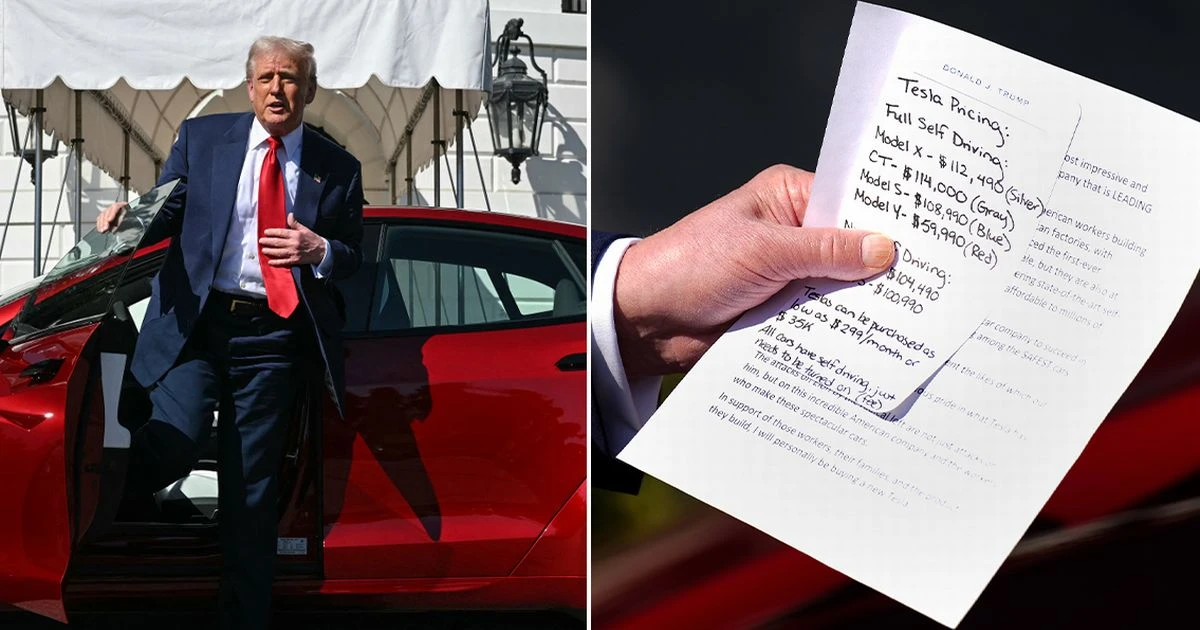 DONALD J. TRUMP
Tesla Pricing:
Full Self Driving:
Model X - $112,490 (Silver)
CT - $114,000 (Gray)
Model S - $108,990 (Blue)
Model Y - $59,990 (Red)
Driving:
$104,490
$100,990
Teslas can be purchased as
low as $299/month or
$35K
All cars have self driving, just
needs to be turned on (fee)
The attacks on left are not just attacks on
him, but on this incredible American company and the workers
who make these spectacular cars.
In support of those workers, their families, and the product
they build, I will personally be buying a new Tesla
impressive and
that is LEADING
workers building
factories, with
the first-ever
but they are also at
state-of-the-art self-
affordable to millions of
company to succeed in
among the SAFEST cars
the likes of which our
pride in what Tesla has